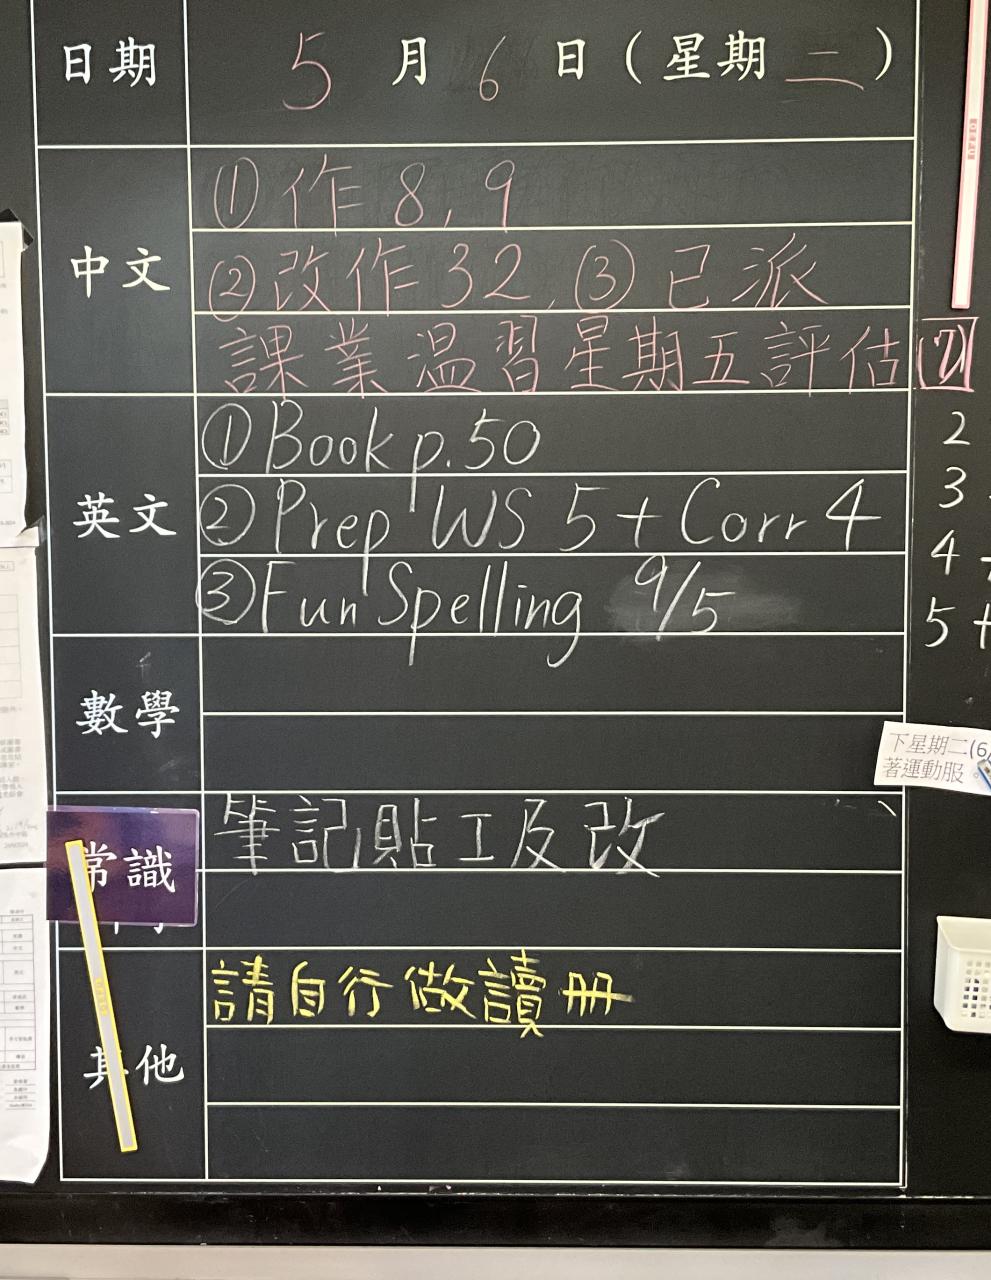 日期 5 月 6 日（星期 二）
中文
①作 8, 9
②改作 32, ③已派
課業溫習星期五評估
英文
①Book p.50
②Prep WS 5 + Corr 4
③Fun Spelling 9/5
2
3
4
5 +
數學
下星期二(6/
著運動服。
常識
筆記貼工及改
其他
請自行做讀冊